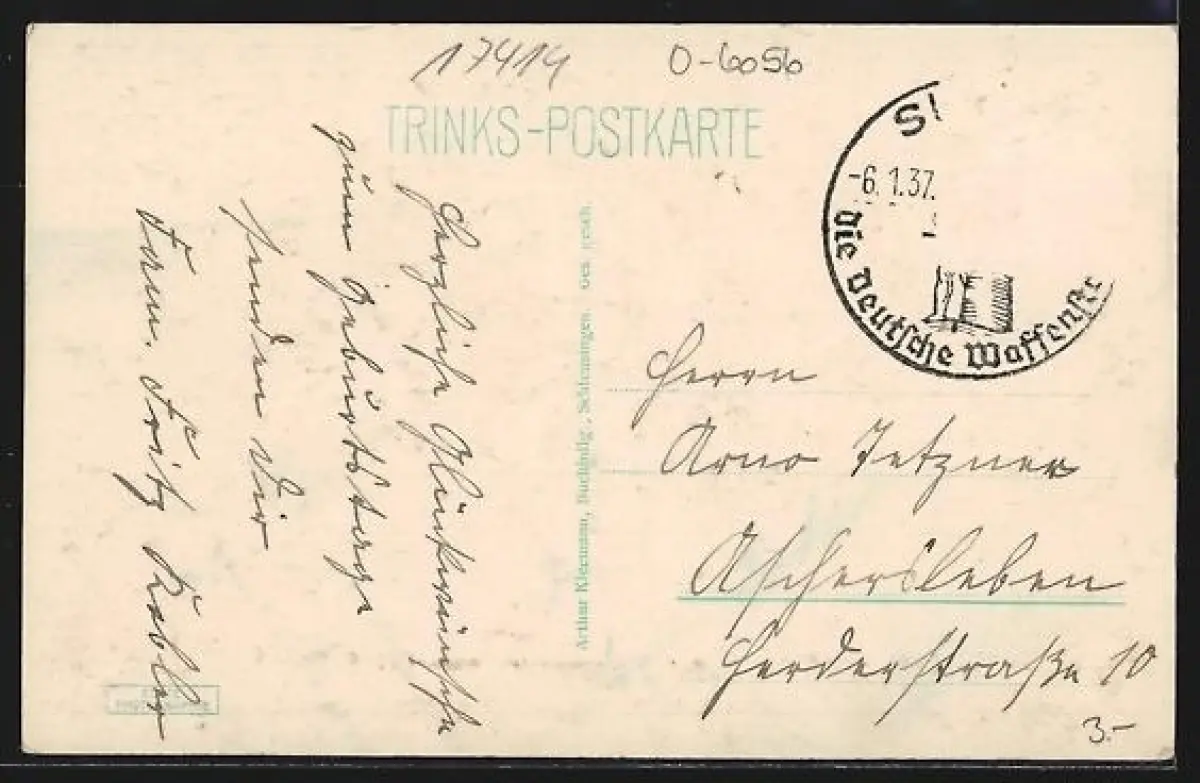 17414
0-6056
TRINKS-POSTKARTE
-6.1.37.
Die Deutsche Waffenst
Herzliche Glückwünsche
zum Geburtstage
senden Dir
Fam. Fritz
Arthur Kleemann, Buchhdlg., Schleusingen. Ges. gesch.
Herrn
Arno Tetzner
Aschersleben
Herderstraße 10
3.-